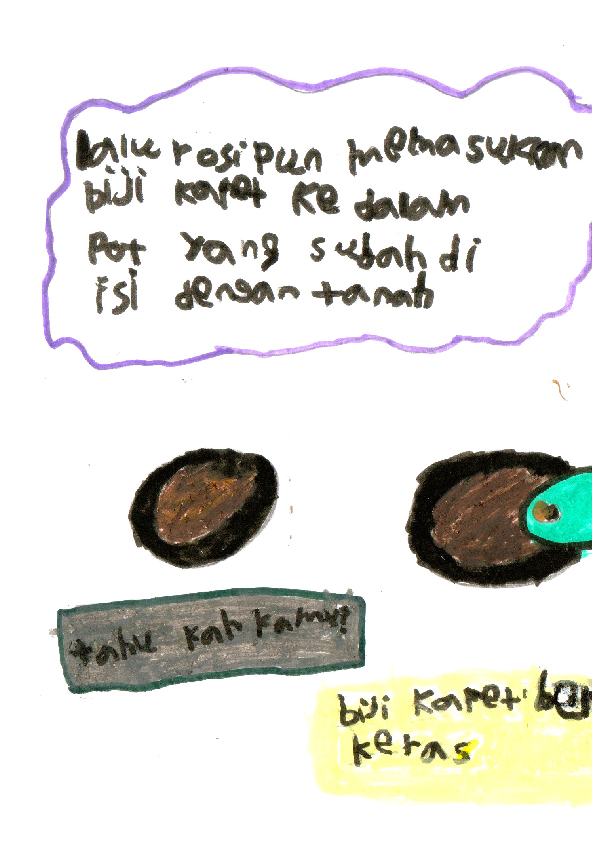 lalu rosipun memasukkan
biji karet ke dalam
pot yang subah di
isi dengan tanah
tahu kah kamu?
biji karet ber
keras